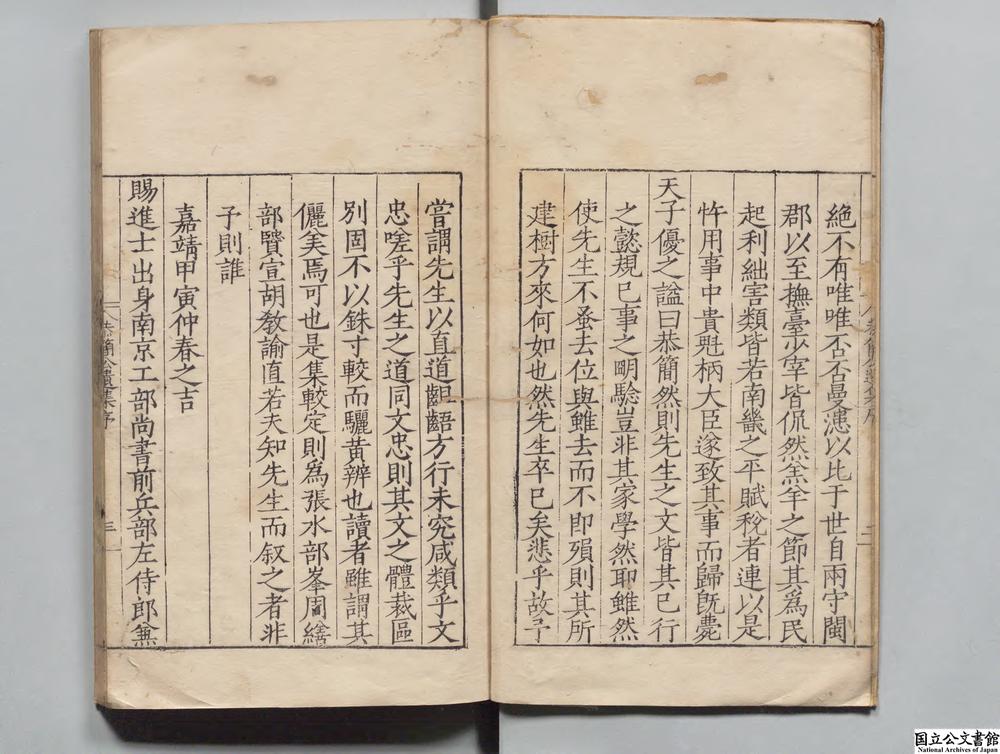 絶不有唯唯否否曼漶以比于世自兩守閩
郡以至撫臺少宰皆侃然羔羊之節其爲民
起利絀害類皆若南畿之平賦稅者連以是
忤用事中貴尠柄大臣遂致其事而歸旣薨
天子優之諡曰恭簡然則先生之文皆其已行
之懿規已事之明驗豈非其家學然耶雖然
使先生不蚤去位與雖去而不即殞則其所
建樹方來何如也然先生卒已矣悲乎故予
嘗謂先生以直道齟齬方行未究咸類乎文
忠嗟乎先生之道同文忠則其文之體裁區
別固不以銖寸較而驪黃辨也讀者雖謂其
儷美焉可也是集較定則爲張水部峯周繕
部贒宣胡敎諭直若夫知先生而叙之者非
子則誰
嘉靖甲寅仲春之吉
賜進士出身南京工部尚書前兵部左侍郎兼
恭簡公遺集序
三
国立公文書館
National Archives of Japan